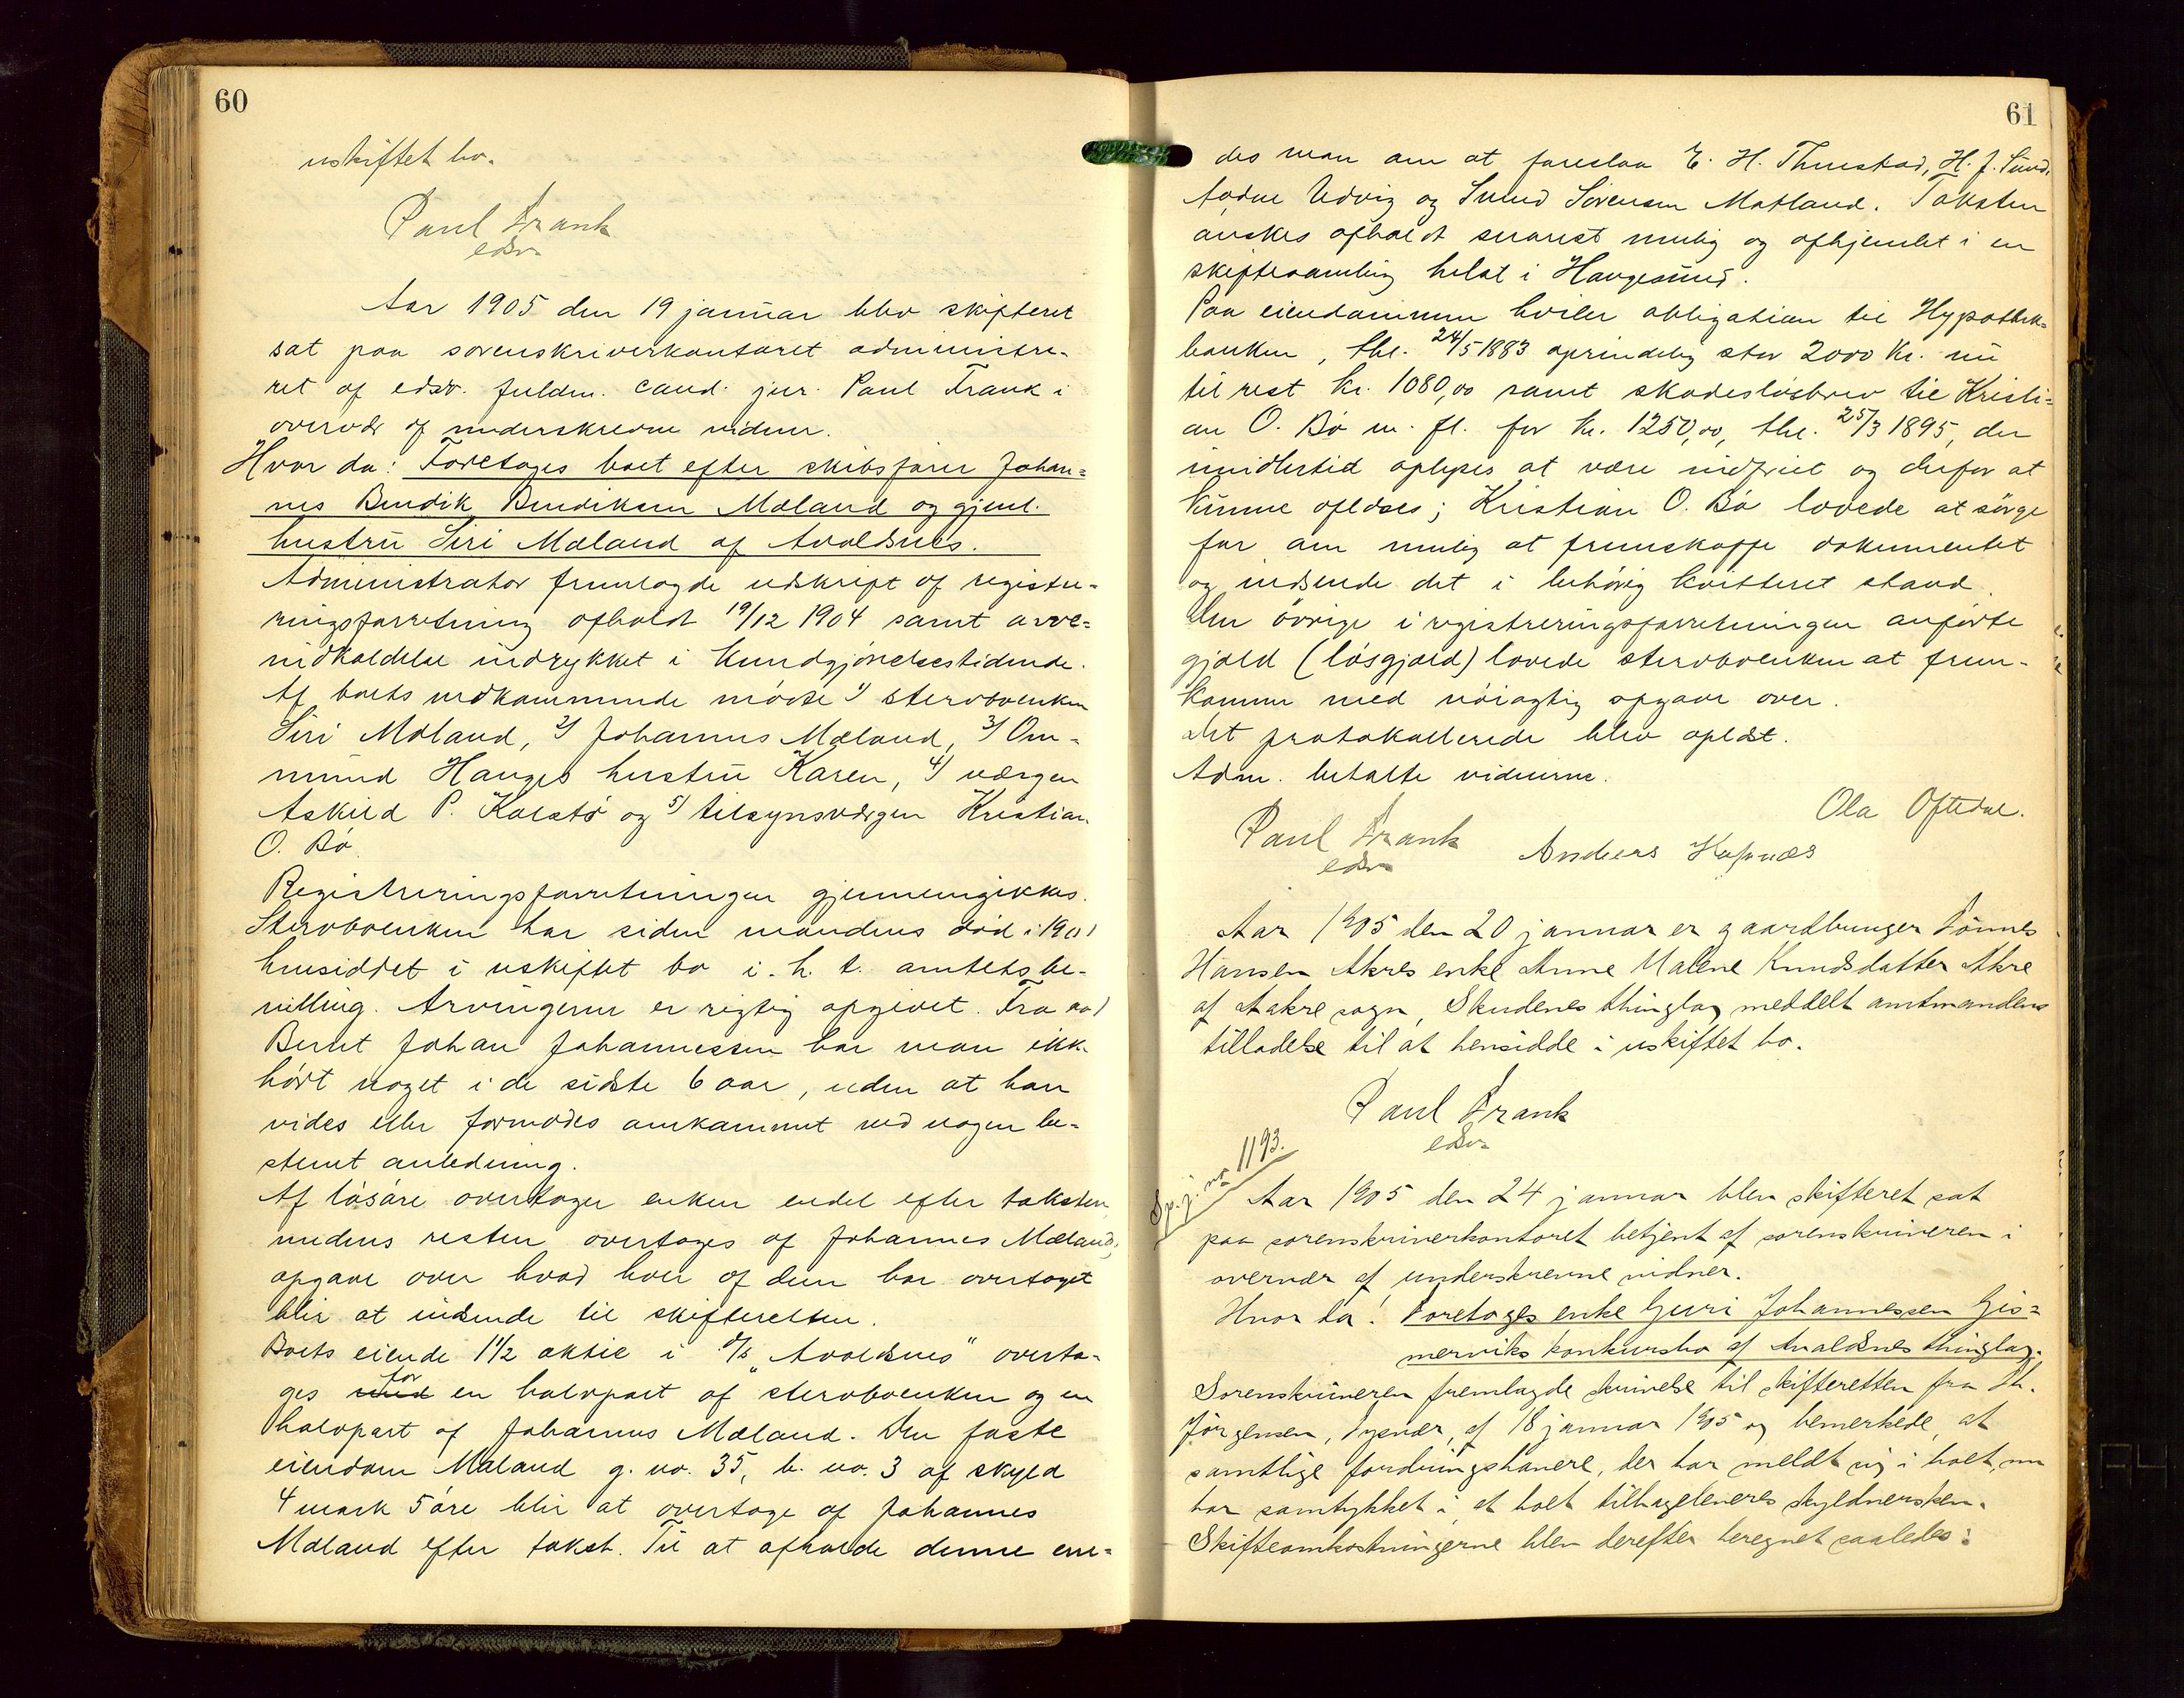 60
uskiftet bo.
Paul Frank
edsv.
Aar 1905 den 19 januar blev skifteret
sat paa sorenskriverkontoret administre-
ret af edsv. fuldm. cand. jur. Paul Frank i
overvær af underskrevne vidner.
Hvor da: Foretoges boet efter skibsfører Johan=
nes Bendik Bendiksen Mæland og gjenl.
hustru Siri Mæland af Avaldsnes.
Administrator fremlagde udskrift af registre-
ringsforretning afholdt 19/12 1904 samt arve=
indkaldelse indrykket i Kundgjørelsestidende.
Af boets vedkommende mødte 1) stervboenken
Siri Mæland, 2) Johannes Mæland, 3) Om-
mund Hauges hustru Karen, 4) værgen
Askild P. Kolstø og 5) tilsynsværgen Kristian
O. Bø
Registreringsforretningen gjennemgikkes.
Stervboenken har siden mandens død i 1901
hensiddet i uskiftet bo i. h. t. amtets be-
villing. Arvingerne er rigtig opgivet. Fra
Bernt Johan Johannessen har man ikke
hørt noget i de sidste 6 aar, uden at han
vides eller formodes omkommet ved nogen be-
stemt anledning.
Af løsøre overtager enken endel efter taksten
medens resten overtages af Johannes Mæland;
opgave over hvad hver af dem har overtaget
blir at indsende til skifteretten.
Boets eiende 1 1/2 aktie i d/s "Avaldsnes" overta-
ges for en halvpart af stervboenken og en
halvpart af Johannes Mæland. Den faste
eiendom Mæland g. no. 35, b. no. 3 af skyld
4 mark 5 øre blir at overtage af Johannes
Mæland efter takst. Til at afholde denne ene=
61
des man om at foreslaa E. H. Thuestad, H. J. Sund,
Aadne Udvig og Svend Sørensen Matland. Taksten
ønskes afholdt snarest mulig og afhjemlet i en
skiftesamling helst i Haugesund.
Paa eiendommen hviler obligation til Hypothek=
banken, thl. 24/5 1883 oprindelig stor 2000 Kr. nu
til rest kr. 1080,00 samt skadesløsbrev til Kristi=
an O. Bø m. fl. for kr. 1250,00, thl. 25/3 1895, der
imidlertid oplyses at være indfriet og derfor at
kunne aflæses; Kristian O. Bø lovede at sørge
for om mulig at fremskaffe dokumentet
og indsende det i behørig kvitteret stand.
Den øvrige i registreringsforretningen anførte
gjæld (løsgjæld) lovede stervboenken at frem-
komme med nøiagtig opgave over.
Det protokollerede blev oplæst.
Adm. betalte vidnerne.
Ola Oftedal.
Paul Frank
edsv
Anders Høpnæs
Aar 1905 den 20 januar er gaardbruger Tønnes
Hansen Akres enke Anne Malene Knudsdatter Akre
af Aakre sogn, Skudenes thinglag meddelt amtmandens
tilladelse til at hensidde i uskiftet bo.
Paul Frank
edsv.
Sp. j. no 1193.
Aar 1905 den 24 januar blev skifteret sat
paa sorenskriverkontoret betjent af sorenskriveren i
overvær af underskrevne vidner.
Hvor da: Foretoges enke Guri Johannessen Gis=
merviks konkursbo af Avaldsnes thinglag.
Sorenskriveren fremlagde skrivelse til skifteretten fra Th.
Jørgensen, Tysvær, af 18 januar 1905 og bemerkede, at
samtlige fordringshavere, der har meldt sig i boet, nu
har samtykket i, at boet tilbageleveres skyldnersken.
Skifteomkostningerne blev derefter beregnet saaledes: